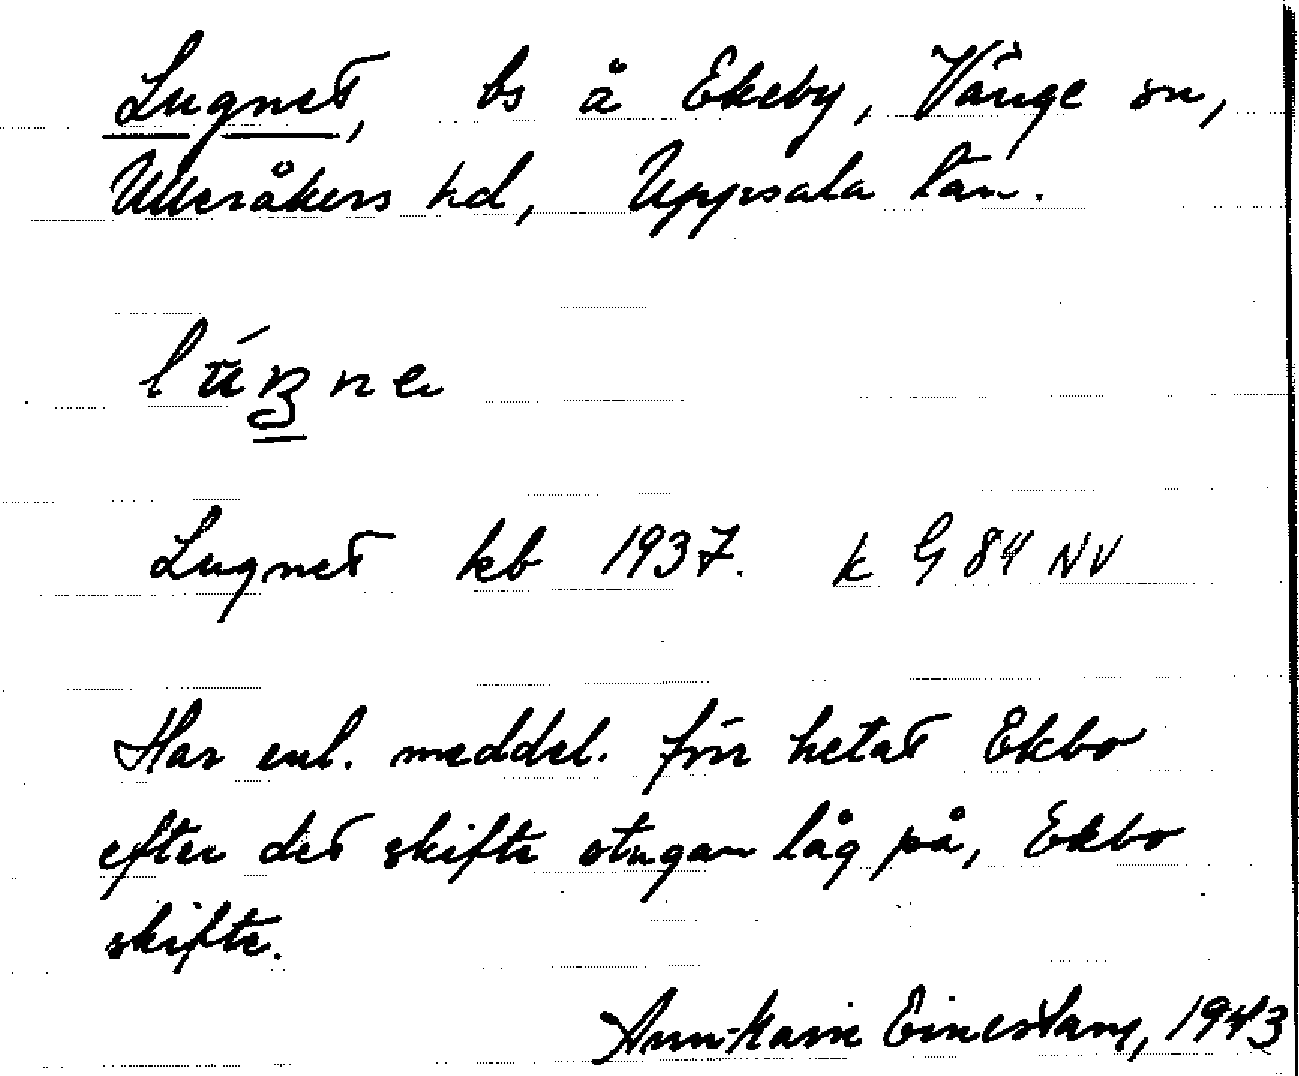 Lugnet, bs å Ekeby, Vänge sn,
Ulleråkers hd, Uppsala län.
Lugnet kb 1937. k G 84 NV
Har enl. meddel. förr hetat Ekbo
efter det skifte stugan låg på, Ekbo
skifte.
Ann-Marie Einestam, 1943